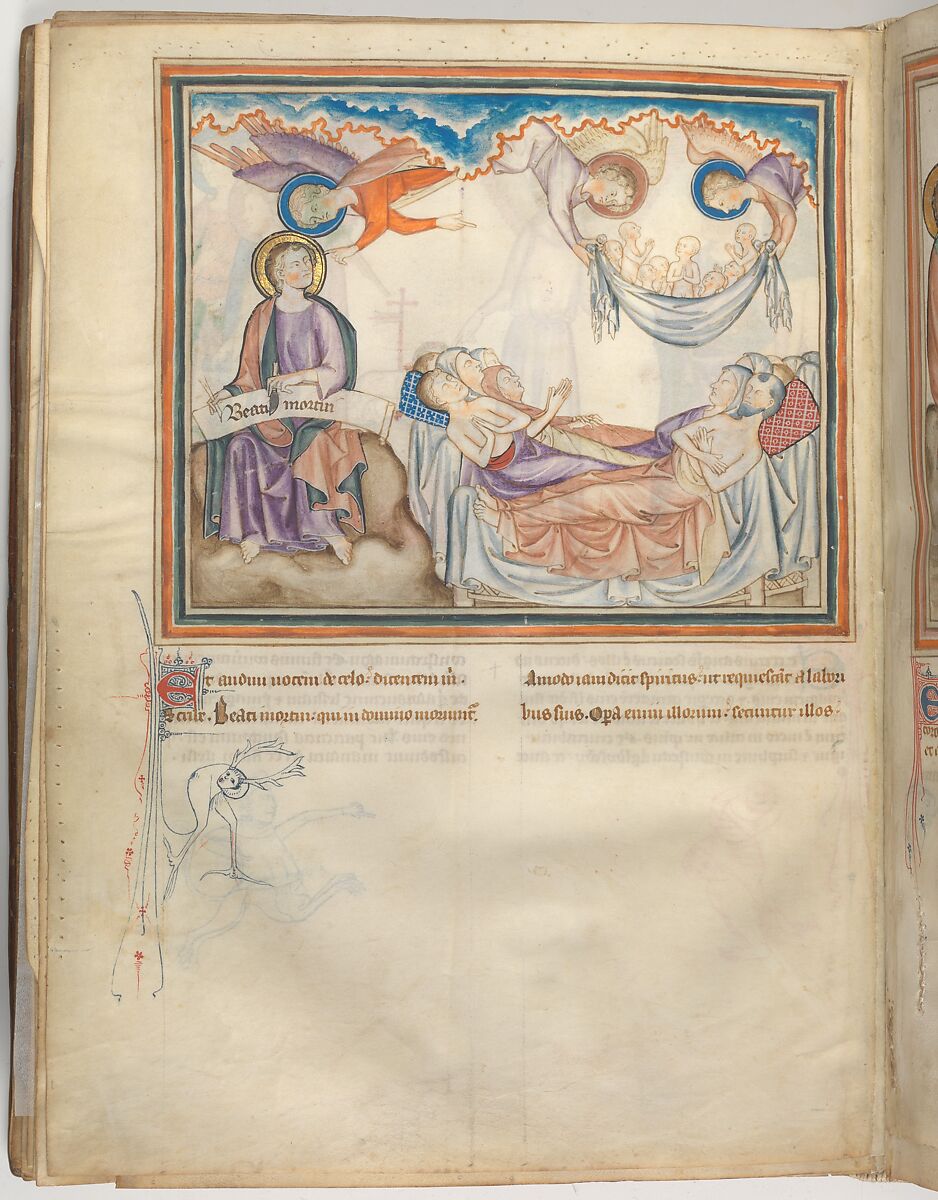 Beati mortui
Et audiui uocem de celo. dicentem m.
Scribe. Beati mortui. qui in domino moriunt.
Amodo iam dicit spiritus. ut requiescāt a labori
bus suis. Opa enim illorum. secuntur illos.